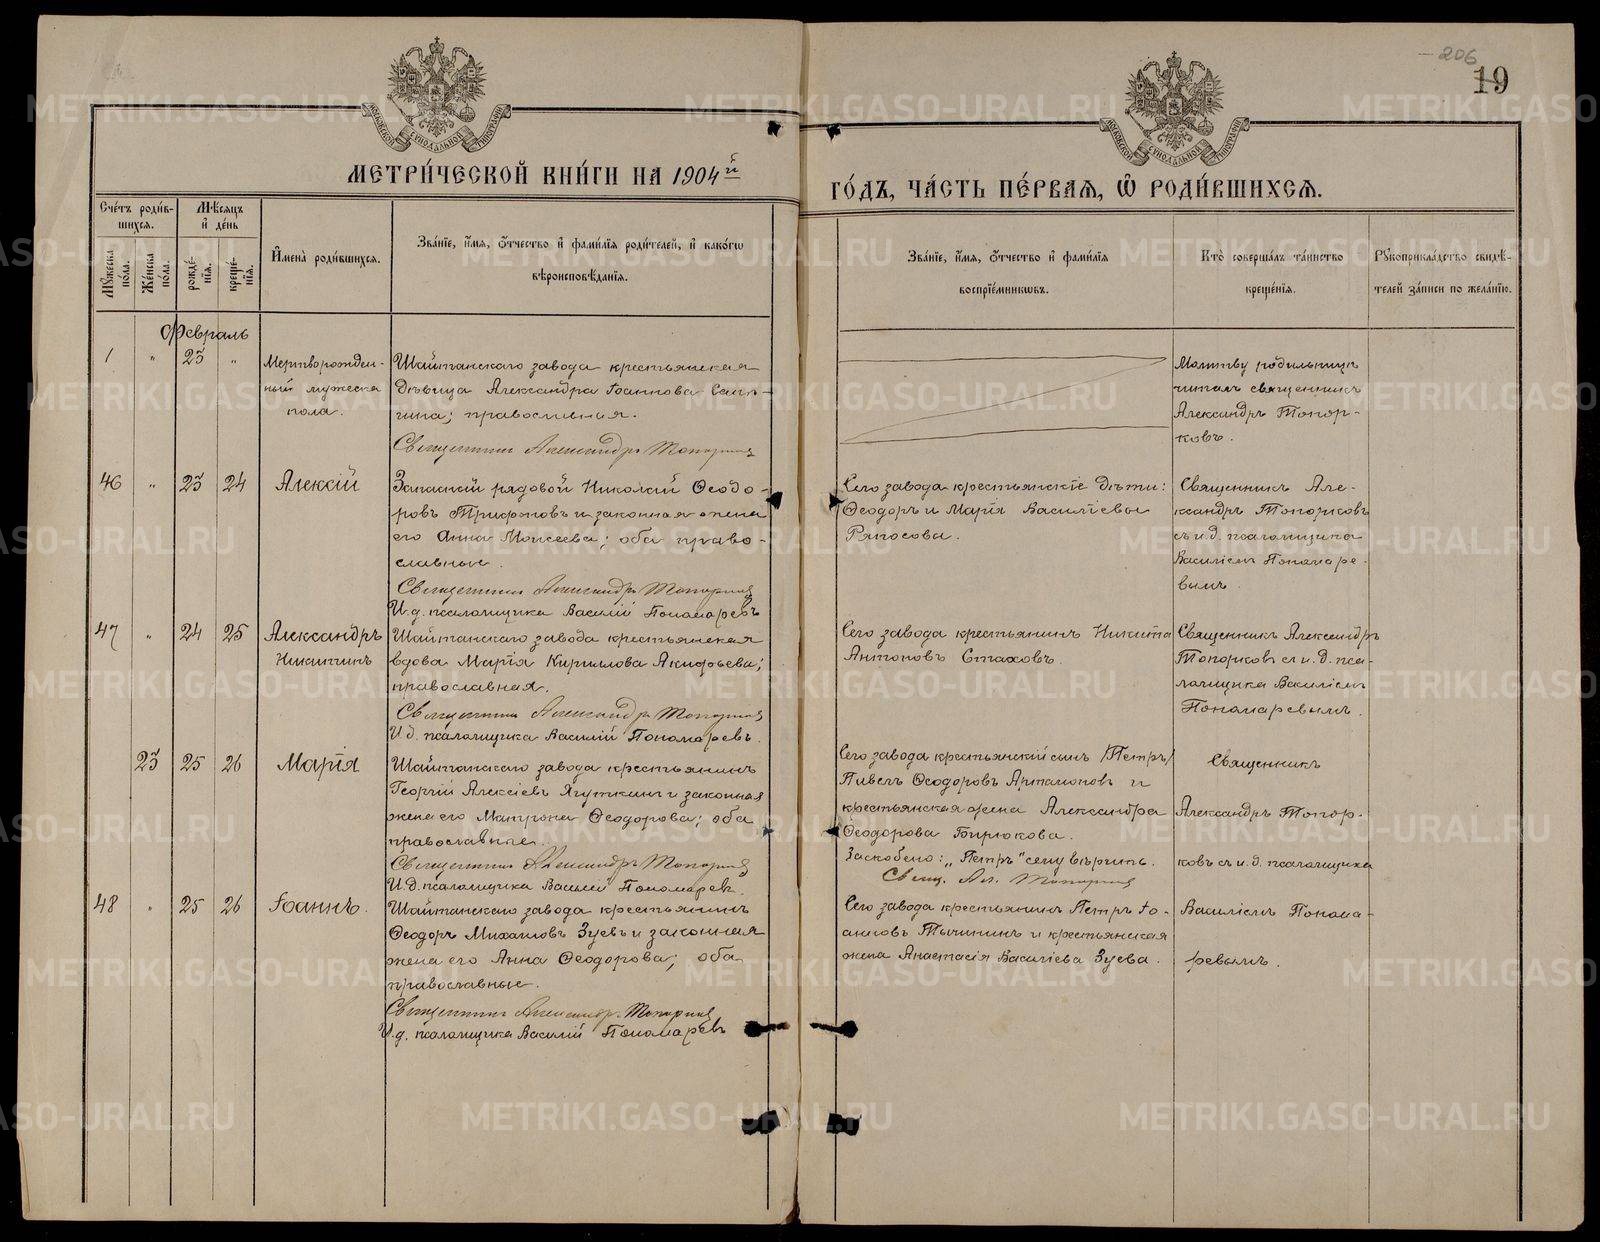 206
19
МЕТРИ́ЧЕСКОЙ КНИ́ГИ НА 1904й
ГО́ДЪ, ЧА́СТЬ ПЕ́РВАЯ, Ѽ РОДИ́ВШИХСЯ.
Сче́тъ роди́в-
шихся.
Мѣ́сяцъ
и де́нь
Му́жеска по́ла.
Же́нска по́ла.
рожде́нїя.
креще́нїя.
Имена̀ роди́вшихся.
Зва́нїе, и́мя, о́тчество и фами́лїя роди́телей, и како́гѡ
вѣроисповѣ́данїя.
Зва́нїе, и́мя, о́тчество и фами́лїя
воспрїе́мникѡвъ.
Кто̀ соверша́лъ та́инство
креще́нїя.
Рукоприкла́дство свидѣ́-
телей за́писи по жела́нїю.
Февраль
1 " 23 "
Мертворожден-
ный мужеска
пола.
Шайтанскаго завода крестьянская
дѣвица Александра Іоаннова
православная.
Священникъ Александръ Топорковъ
Молитву родильницѣ
читалъ священникъ
Александръ Топор-
ковъ.
46 " 23 24 Алексій
Запасной рядовой Николай Ѳеодо-
ровъ Трифоновъ и законная жена
его Анна Моисеева; оба право-
славные.
Священникъ Александръ Топорковъ
И.д. псаломщика Василій Пономаревъ
Сего завода крестьянскіе дѣти:
Ѳеодоръ и Марія Василіевы
Ряпосова.
Священникъ Але-
ксандръ Топорковъ
съ и.д. псаломщика
Василіемъ Пономаре-
вымъ.
47 " 24 25 Александръ
Никитинъ
Шайтанскаго завода крестьянская
вдова Марія Кириллова Акинфьева;
православная.
Священникъ Александръ Топорковъ
И.д. псаломщика Василій Пономаревъ.
Сего завода крестьянинъ Никита
Антоновъ Стаховъ.
Священникъ Александръ
Топорковъ съ и.д. пса-
ломщика Василіемъ
Пономаревымъ.
23 25 26 Марія
Шайтанскаго завода крестьянинъ
Георгій Алексіевъ Ягуткинъ и законная
жена его Матрона Ѳеодорова; оба
православные.
Священникъ Александръ Топорковъ
И.д. псаломщика Василій Пономаревъ.
Сего завода крестьянскій сынъ /Петръ/
Павелъ Ѳеодоровъ Артамоновъ и
крестьянская жена Александра
Ѳеодорова Бирюкова.
Заскоблено: „Петръ" сему вѣрить.
Свящ. Ал. Топорковъ
Священникъ
Александръ Топор-
ковъ съ и.д. псаломщика
48 " 25 26 Іоаннъ.
Шайтанскаго завода крестьянинъ
Ѳеодоръ Михаиловъ Зуевъ и законная
жена его Анна Ѳеодорова; оба
православные.
Священникъ Александръ Топорковъ
И.д. псаломщика Василій Пономаревъ
Сего завода крестьянинъ Петръ Іо-
анновъ Тычининъ и крестьянская
жена Анастасія Василіева Зуева.
Василіемъ Понома-
ревымъ.
METRIKI.GASO-URAL.RU